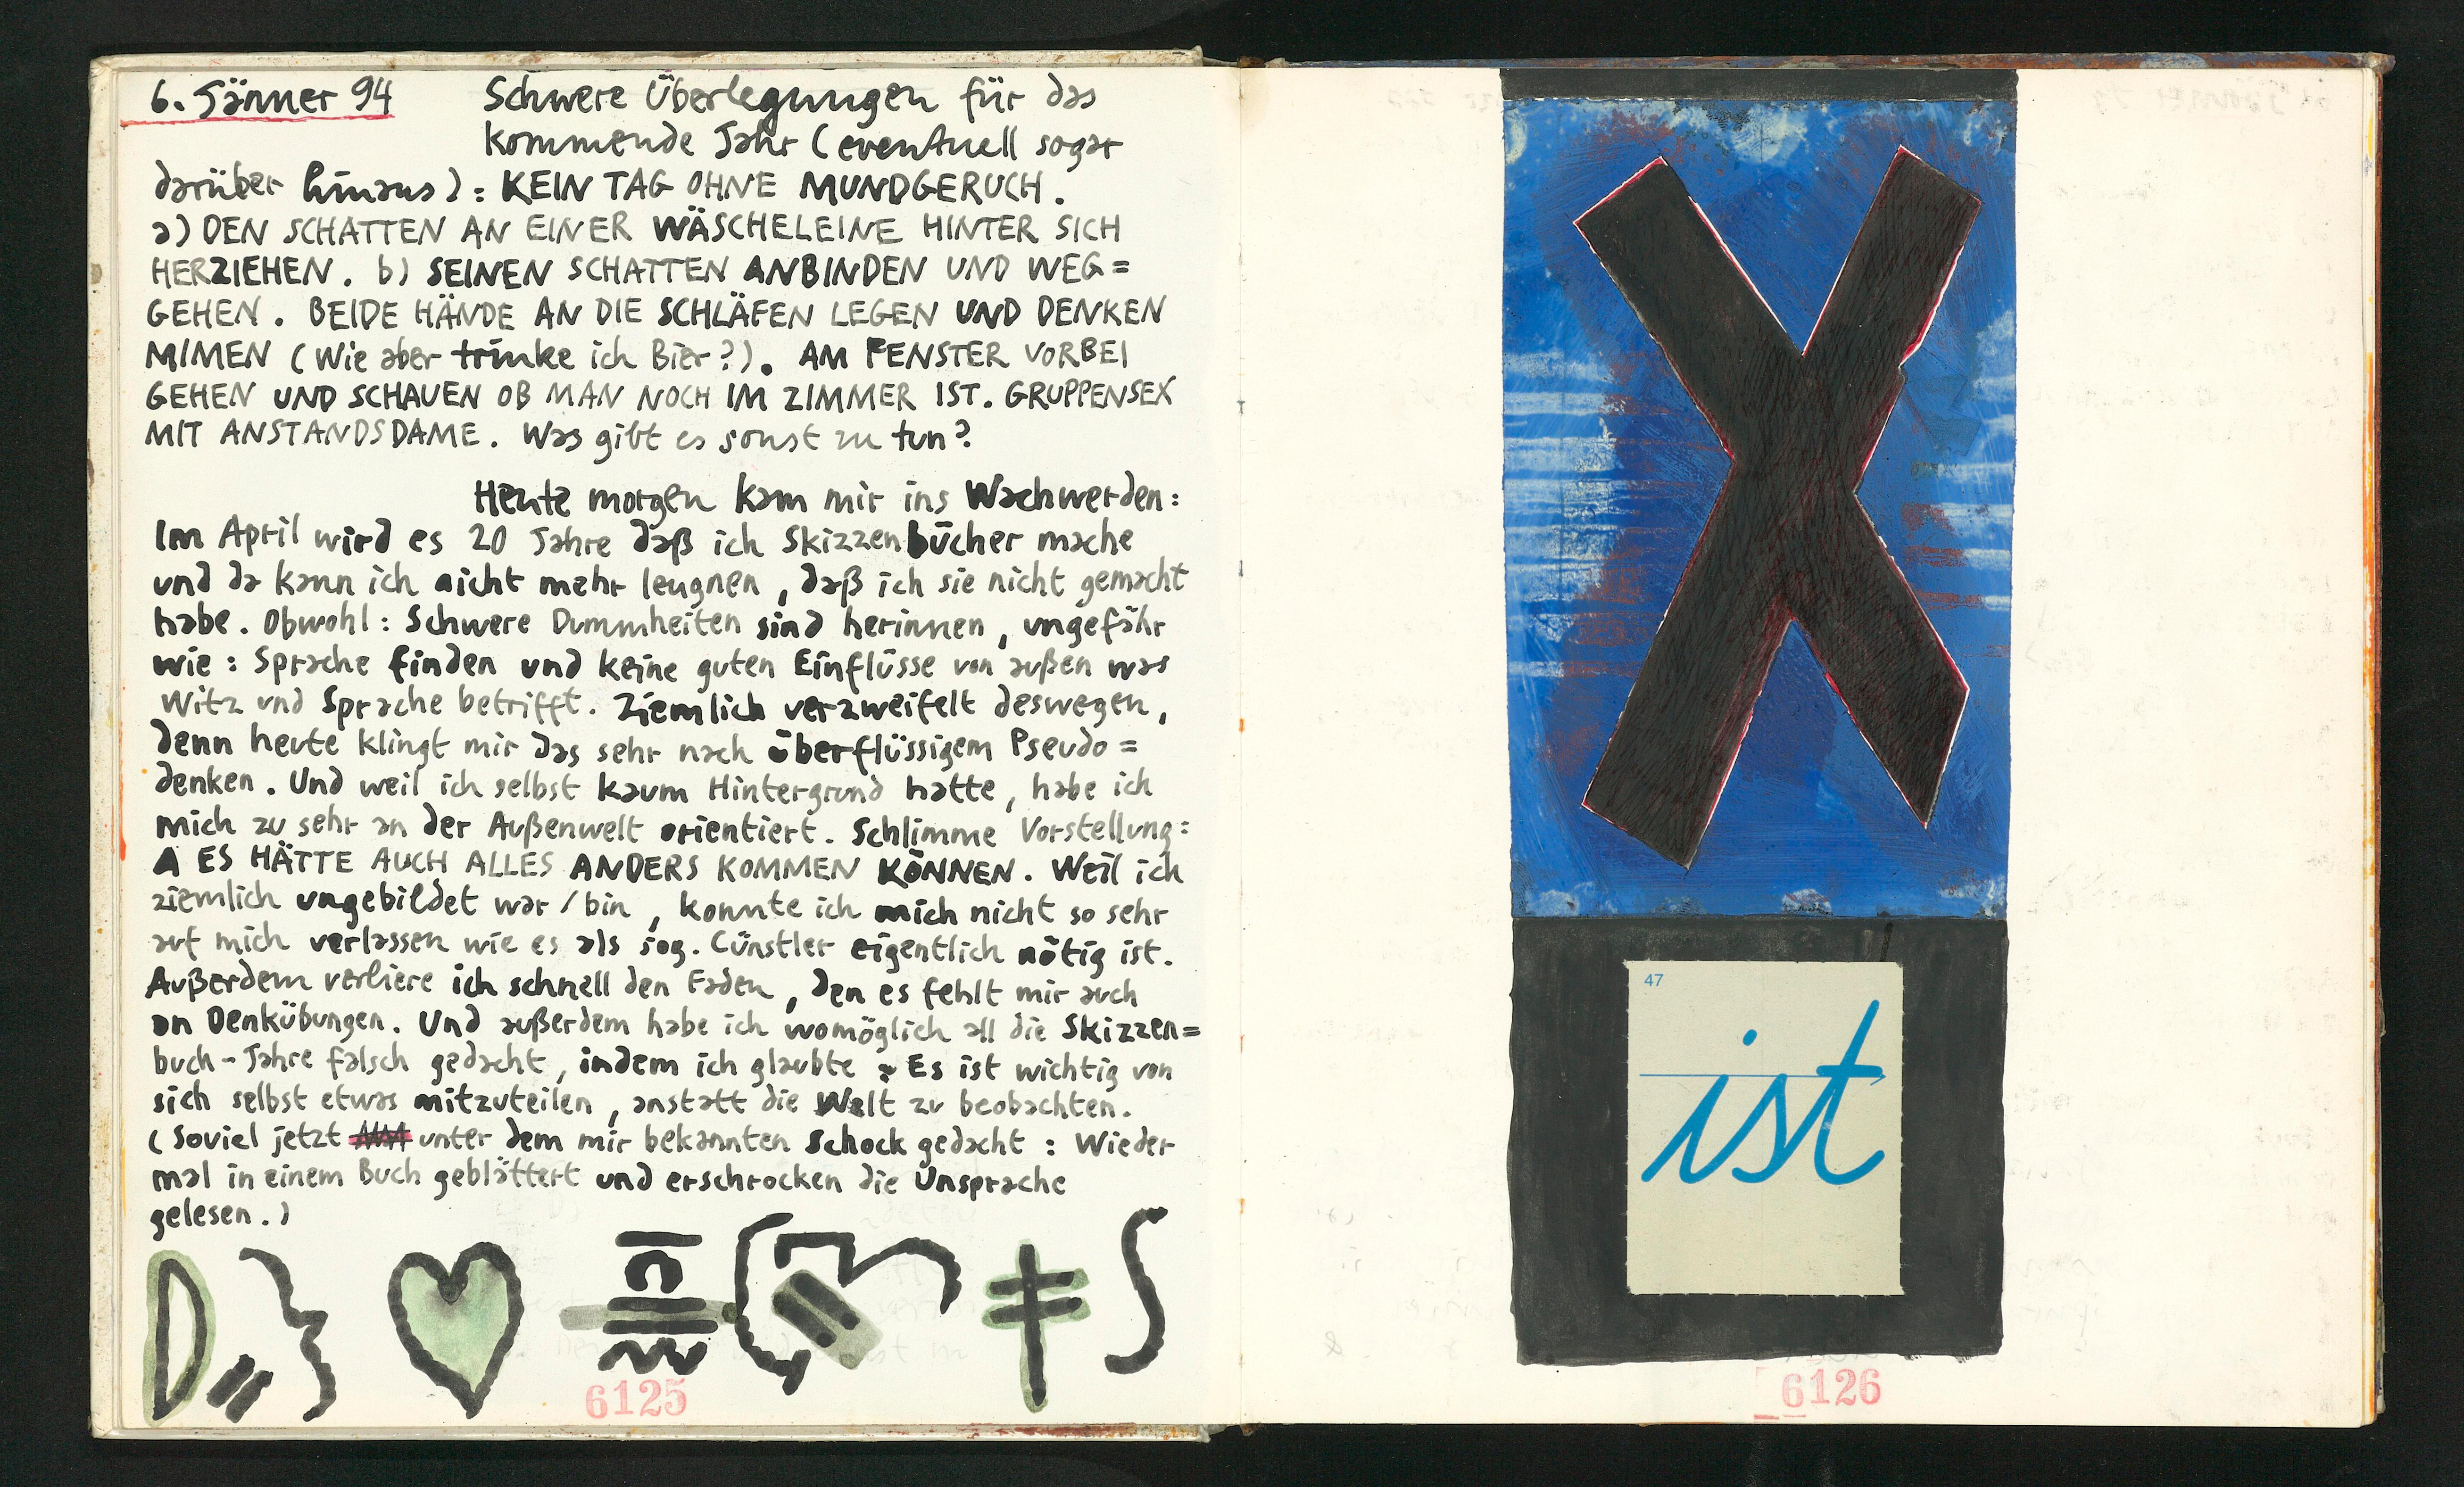 6. Jänner 94 Schwere Überlegungen für das
kommende Jahr (eventuell sogar
darüber hinaus): KEIN TAG OHNE MUNDGERUCH.
a) DEN SCHATTEN AN EINER WÄSCHELEINE HINTER SICH
HERZIEHEN. b) SEINEN SCHATTEN ANBINDEN UND WEG=
GEHEN. BEIDE HÄNDE AN DIE SCHLÄFEN LEGEN UND DENKEN
MIMEN (Wie aber trinke ich Bier?). AM FENSTER VORBEI
GEHEN UND SCHAUEN OB MAN NOCH IM ZIMMER IST. GRUPPENSEX
MIT ANSTANDSDAME. Was gibt es sonst zu tun?
Heute morgen kam mir ins Wachwerden:
Im April wird es 20 Jahre daß ich Skizzenbücher mache
und da kann ich nicht mehr leugnen, daß ich sie nicht gemacht
habe. Obwohl: Schwere Dummheiten sind herinnen, ungefähr
wie: Sprache finden und keine guten Einflüsse von außen was
Witz und Sprache betrifft. Ziemlich verzweifelt deswegen,
denn heute klingt mir das sehr nach überflüssigem Pseudo=
denken. Und weil ich selbst kaum Hintergrund hatte, habe ich
mich zu sehr an der Außenwelt orientiert. Schlimme Vorstellung:
A ES HÄTTE AUCH ALLES ANDERS KOMMEN KÖNNEN. Weil ich
ziemlich ungebildet war/bin, konnte ich mich nicht so sehr
auf mich verlassen wie es als sog. Cünstler eigentlich nötig ist.
Außerdem verliere ich schnell den Faden, den es fehlt mir auch
an Denkübungen. Und außerdem habe ich womöglich all die Skizzen=
buch-Jahre falsch gedacht, indem ich glaubte: Es ist wichtig von
sich selbst etwas mitzuteilen, anstatt die Welt zu beobachten.
(Soviel jetzt unter dem mir bekannten Schock gedacht: Wieder
mal in einem Buch geblättert und erschrocken die Unsprache
gelesen.)
6125
X
47
ist
6126